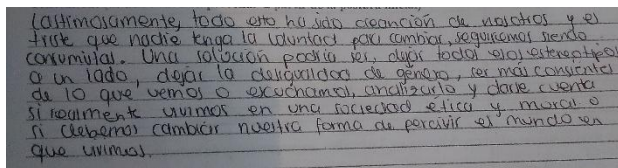 Lastimosamente, todo esto ha sido creanción de nosotros y es
triste que nadie tenga la voluntad para cambiar, seguiremos siendo
consumidas. Una solución podría ser, dejar todos esos estereotipos
a un lado, dejar la desigualdad de género, ser más consientes
de lo que vemos o escuchamos, analizarlo y darle cuenta
si realmente vivimos en una sociedad etica y moral o
si debemos cambiar nuestra forma de percivir el mundo en
que vivimos.